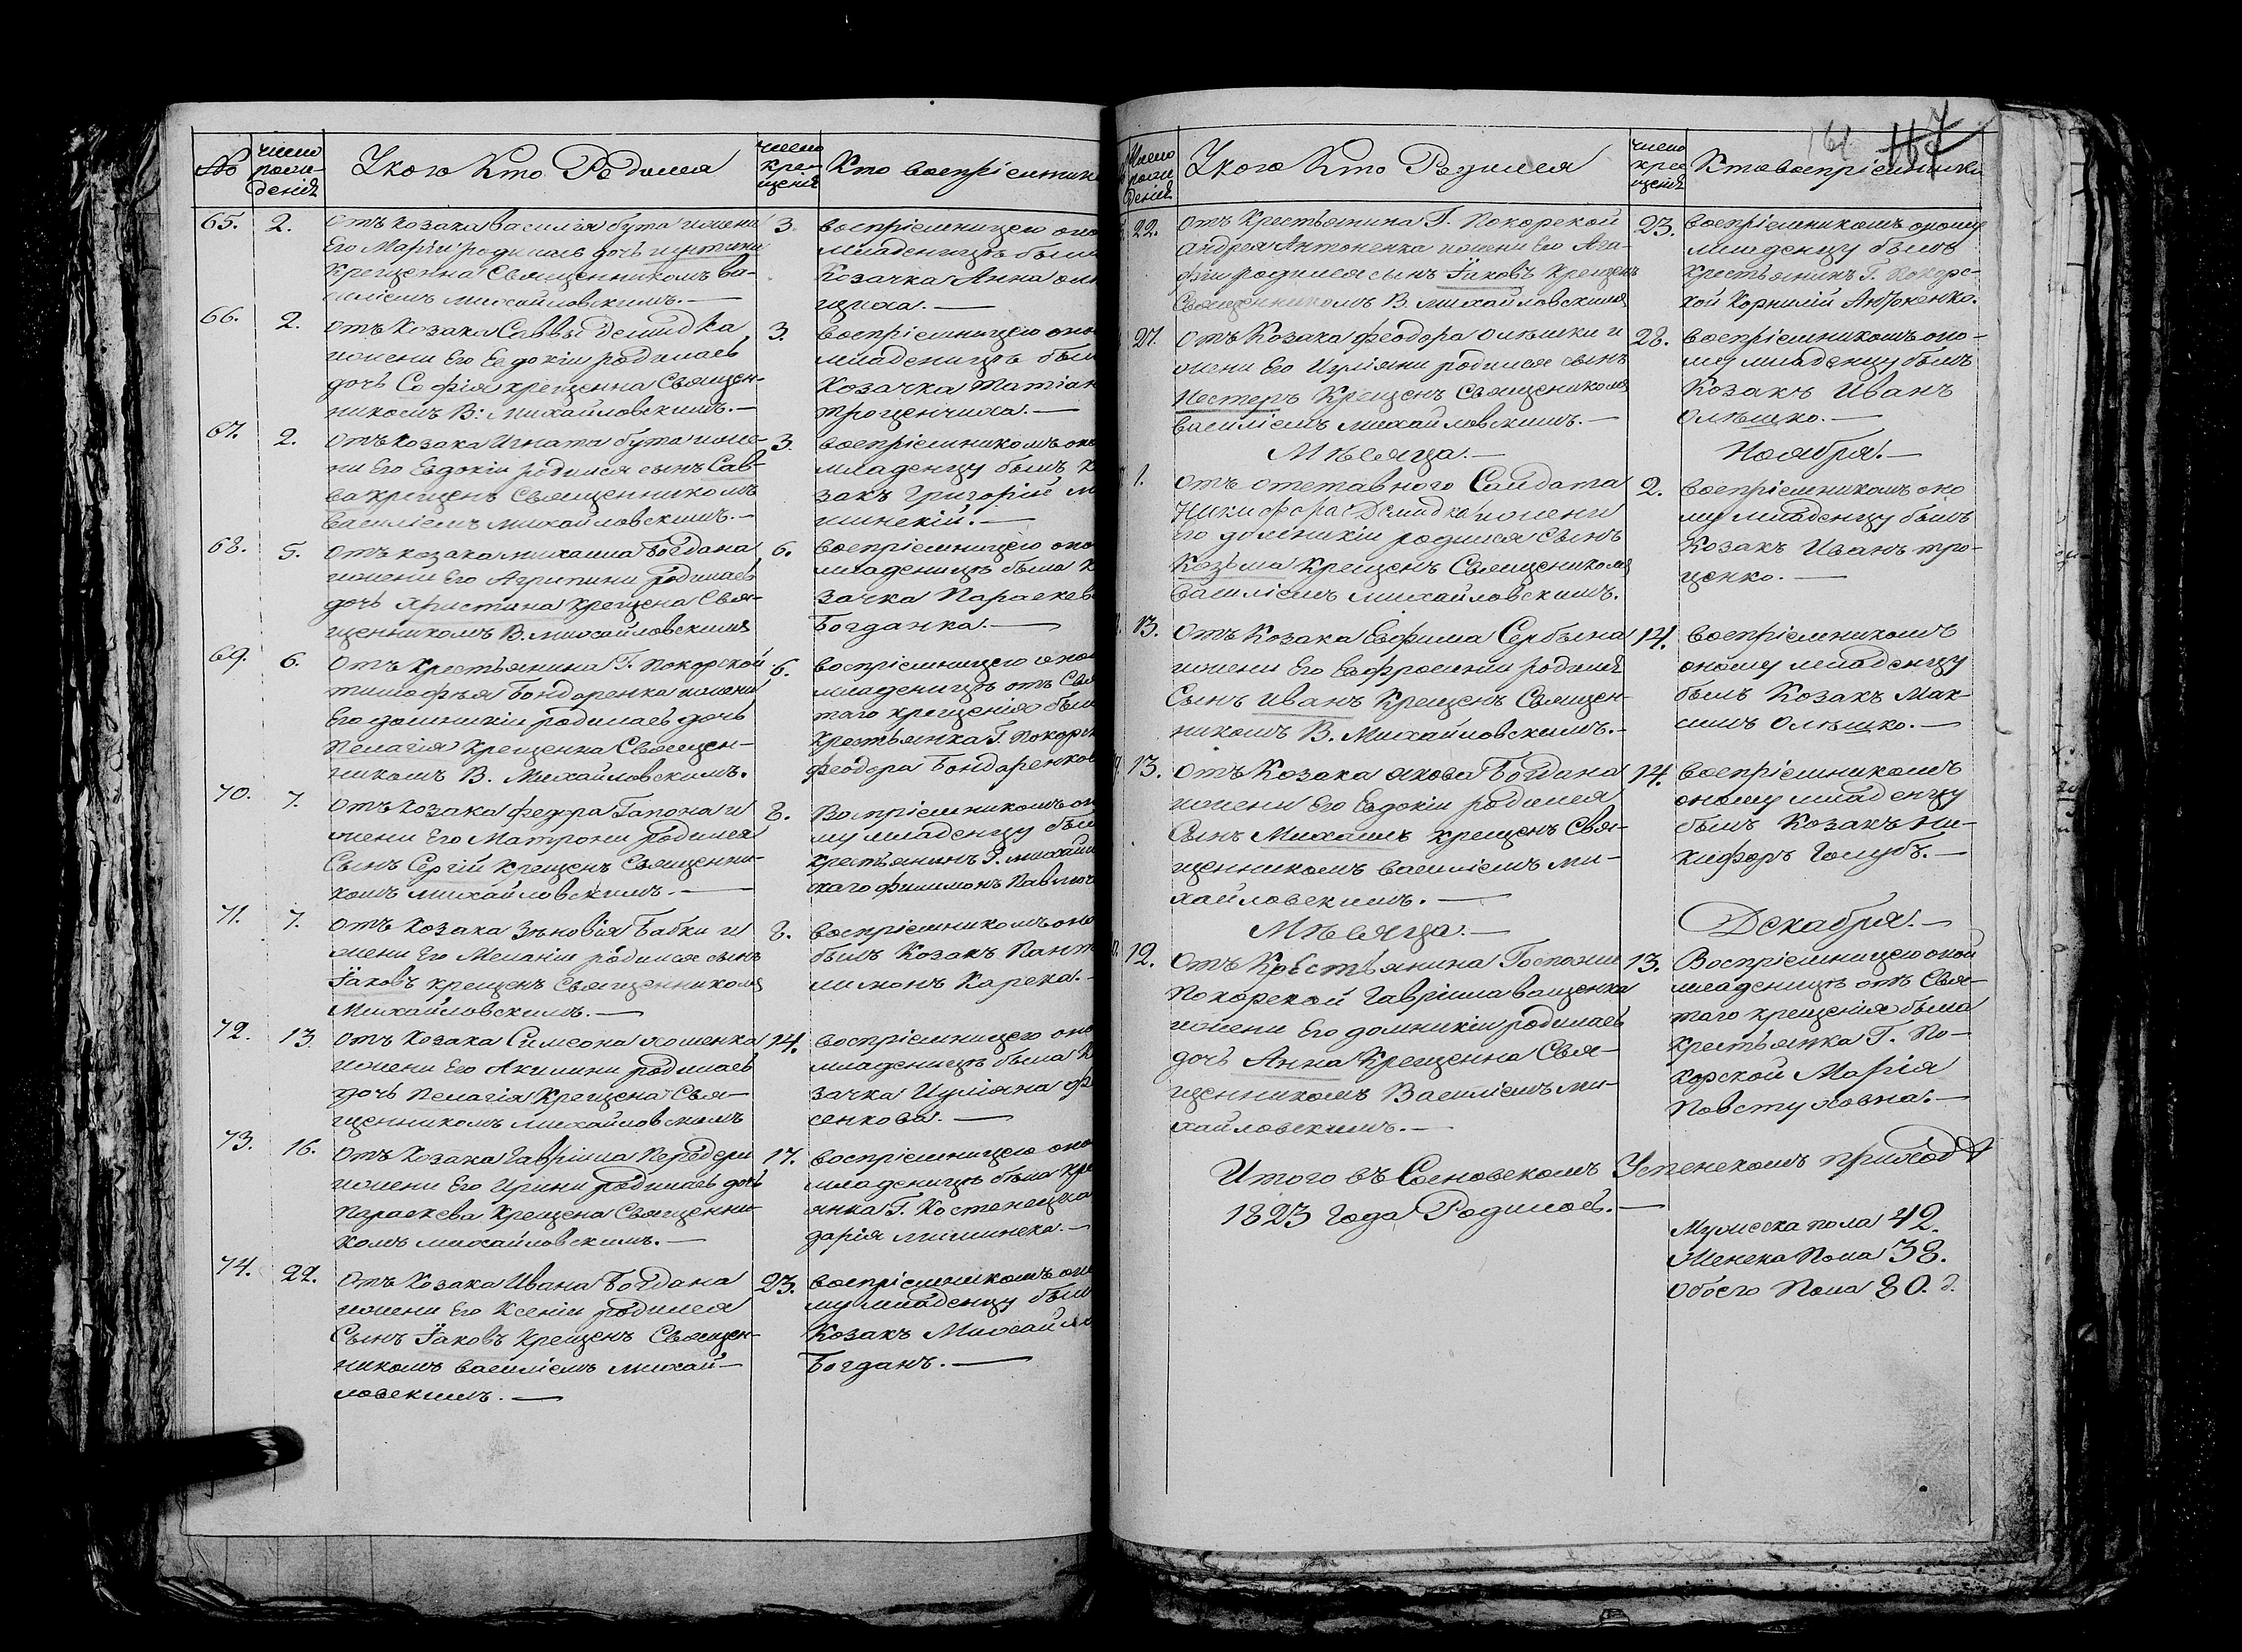 №
число
рож-
денія
У кого Кто Родился
число
кре-
щенія
Кто воспріемник
65. 2.
Отъ козака василія бута ижени
Его Марѳи родилась дочь
Крещенна Священникомъ ва-
силіемъ михайловскимъ.—
3.
воспріемницею оно
младеницъ был
Козачка Анна
щиха.—
66. 2.
Отъ Козака Саввы Демидка
ижени Его Евдокіи родилась
дочь Софія крещенна Священ-
никомъ В: Михайловскимъ.—
3.
воспріемницею оно
младеницъ был
Козачка татіан
троценчиха.—
67. 2.
Отъ козака Игната бута иже-
ни Его Евдокіи родился сынъ Сав-
ва крещенъ Священникомъ
Василіемъ михайловскимъ.—
3.
воспріемникомъ оно
младенцу былъ К
закъ Григорій М
шинскій.—
68. 5.
Отъ козака михаила Богдана
ижени Его Агрипини родилась
дочь христина крещена Свя-
щенникомъ В. михайловскимъ
6.
воспріемницею оно
младеницъ была К
зачка Параскев
Богданка.—
69. 6.
Отъ крестьянина Г. Покорской
тимофѣя Бондаренка ижени
Его домникіи родилась дочь
Пелагія Крещенна Священ-
никомъ В. Михайловскимъ.
6.
воспріемницею оно
младеницъ отъ Свя
таго крещенія был
крестьянка Г. Покорс
феодора Бондаренков
70. 7.
Отъ козака федора Гапона и
жени Его Матрони родился
Сынъ Сергій крещенъ Священни-
комъ михайловскимъ.—
8.
Воспріемникомъ он
му младенцу был
крестьянинъ Г. михайл
скаго филимонъ Павлюч
71. 7.
Отъ козака Зѣновія Бабки и
жени Его Меланіи родился сынъ
Іаковъ крещенъ Священникомъ
Михайловскимъ.—
8.
воспріемникомъ оно
былъ Козакъ Пант
лимонъ Карека.—
72. 13.
Отъ Козака Симеона хоменка
ижени Его Акилини родилась
дочь Пелагія Крещена Свя-
щенникомъ михайловскимъ
14.
воспріемницею оно
младеницъ была К
зачка Иуліяна Ф
сенкова.—
73. 16.
Отъ Козака Гавріила Передери
ижени Его Ирини родилась дочь
Параскева Крещена Священни-
комъ михайловскимъ.—
17.
воспріемницею оно
младеницъ была кре
янка Г. Костенецка
дарія мишинска.—
74. 22.
Отъ Козака Ивана Богдана
ижени Его Ксеніи родился
Сынъ Іаковъ крещенъ Священ-
никомъ василіемъ михай-
ловскимъ.—
23.
воспріемникомъ оно
му младенцу был
Козакъ Михайл
Богданъ.—
161
Число
рож
денія
У кого Кто Родился
число
кре-
щенія
Кто воспріемники
22.
Отъ Крестьянина Г. Покорской
андрея Антоненка ижени Его Ага-
фіи родился сынъ Іаковъ Крещенъ
Священникомъ В. михайловскимъ
23.
воспріемникомъ оному
младенцу былъ
крестьянинъ Г. Покорс-
кой Корнилій
27.
Отъ Козака феодора Олешки и
жени Его Иуліяни родился сынъ
Нестеръ Крещенъ Священикомъ
василіемъ михайловскимъ.—
28.
воспріемникомъ оно-
му младенцу былъ
Козакъ Иванъ
Олешко.—
Мѣсяца.— Ноября.—
1.
Отъ отставного Солдата
Никифора Демидка ижени
Его домникіи родился Сынъ
Козьма Крещенъ Священикомъ
Василіемъ михайловскимъ.
2.
воспріемникомъ оно
му младенцу былъ
Козакъ Иванъ тро-
ценко.—
13.
Отъ Козака Евфима Сербина
ижени Его Евфросиніи родился
Сынъ иванъ Крещенъ Священ-
никомъ В. Михайловскимъ.—
14.
воспріемникомъ
оному младенцу
былъ Козакъ Мак-
симъ Олешко.—
13.
Отъ Козака якова Богдана
ижени Его Евдокіи родился
Сынъ Михаилъ крещенъ Свя-
щенникомъ василіемъ ми-
хайловскимъ.—
14.
воспріемникомъ
оному младенцу
былъ Козакъ Ни-
кифоръ Голубъ.—
Мѣсяца.— Декабря.—
12.
Отъ Крестьянина Госпожи
Покорской Гавріила ващенка
ижени Его домникіи родилась
дочь Анна Крещенна Свя-
щенникомъ Василіемъ ми-
хайловскимъ.—
13.
Воспріемницею оной
младеницъ отъ Свя-
таго крещенія была
крестьянка Г. По-
корской Марія
Повстуховна.—
Итого въ Сосновскомъ Успенскомъ приходѣ
1823 Года Родилось.—
Мужеска пола 42.
Женска Пола 38.
Обоего Пола 80. д.